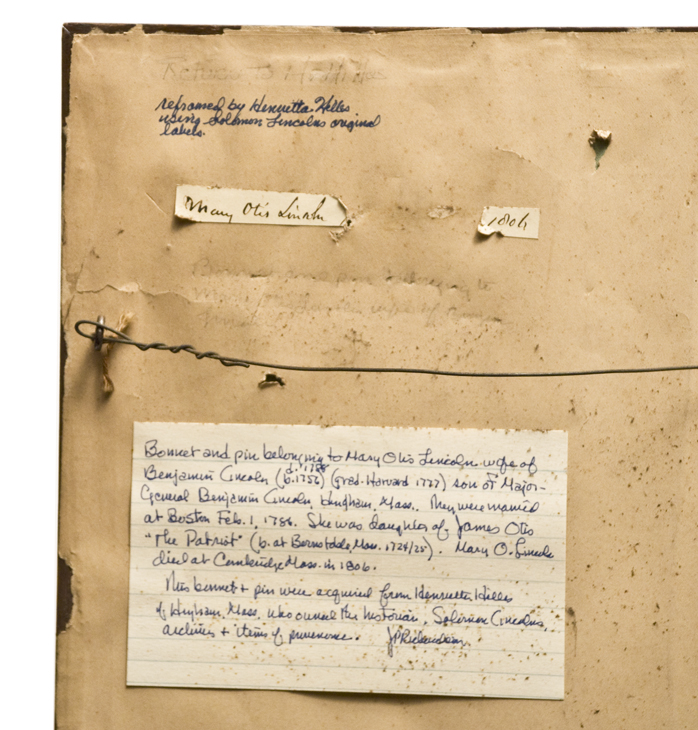 Return to
reframed by Henrietta Hilles
using Solomon Lincolns original
labels.
Mary Otis Lincoln
1806
Bonnet and pin belonging to
wife of
Bonnet and pin belonging to Mary Otis Lincoln wife of
d. 1788
Benjamin Lincoln (b. 1756) (grad. Harvard 1777) son of Major-
General Benjamin Lincoln, Hingham, Mass. They were married
at Boston Feb. 1, 1786. She was daughter of James Otis
"The Patriot" (b. at Barnstable, Mass. 1724/25). Mary O. Lincoln
died at Cambridge Mass. in 1806.
This bonnet + pin were acquired from Henrietta Hilles
of Hingham, Mass, who owned the historian, Solomon Lincolns,
archives + items of provenance. JPRichardson